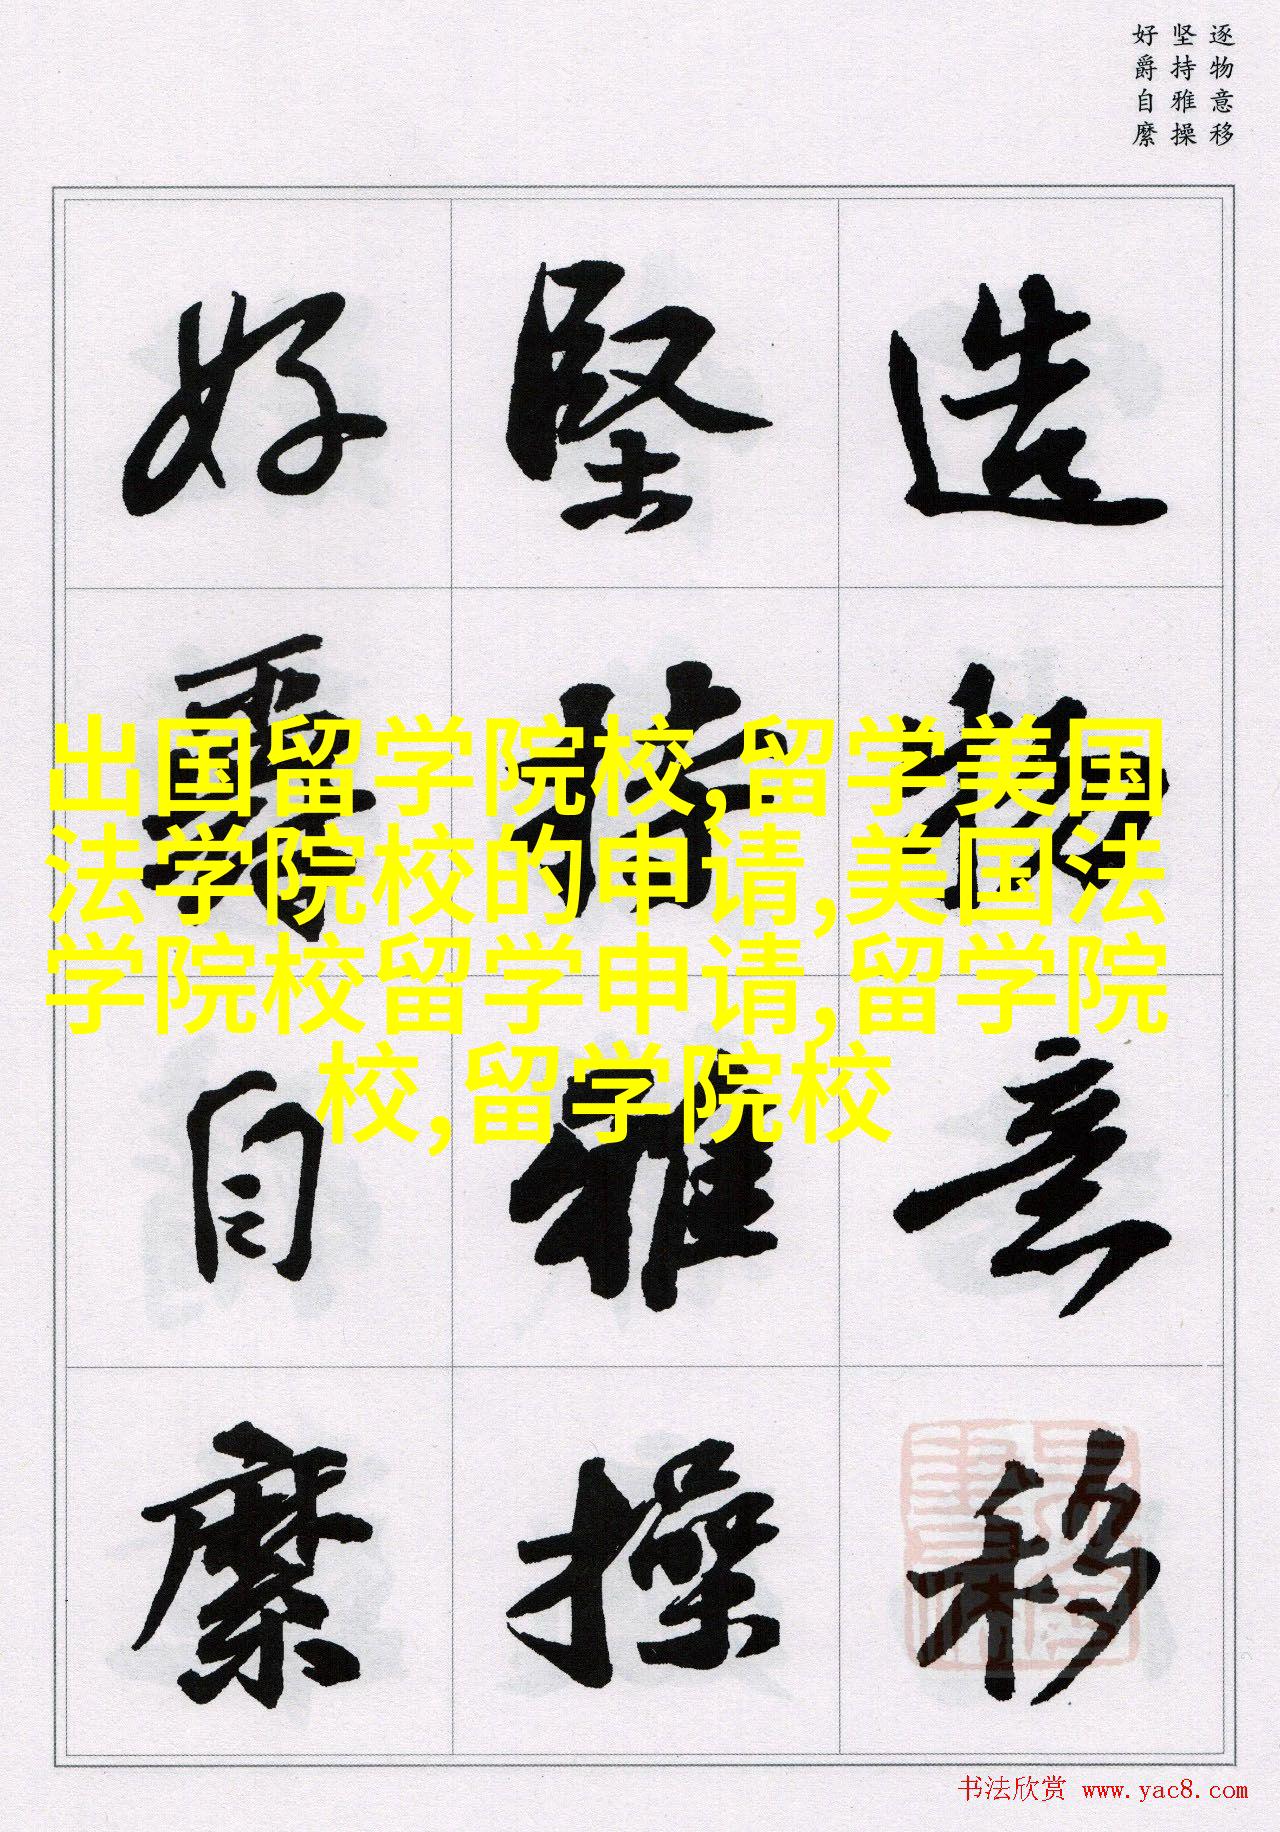 逐物意移
坚持雅操
好爵自縻
造物意移
堅持雅操
好爵自縻
出国留学院校,留学美国
法学院校的申请,美国法
学院校留学申请,留学院
校,留学院校
书法欣赏 www.yac8.com